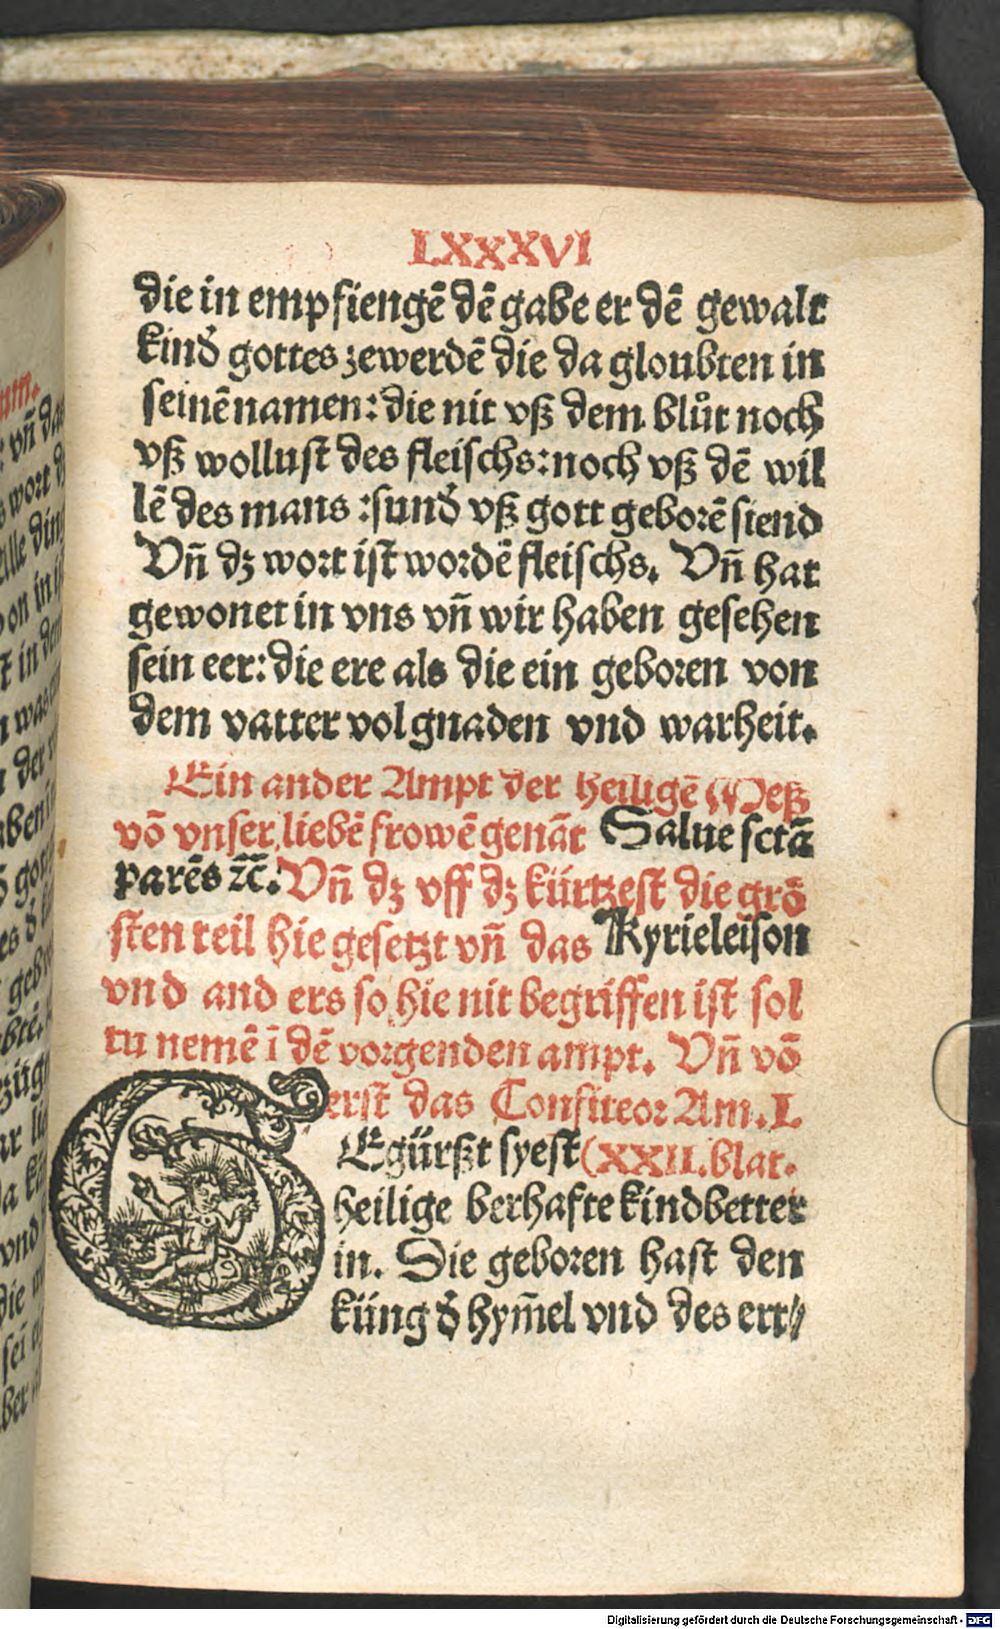 LXXXVI
die in empfiengē dē gabe er dē gewalt
kinď gottes zewerdē die da gloubten in
seinē namen: die nit vß dem blůt noch
vß wollust des fleischs: noch vß dē wil
lē des mans : sunď vß gott geborē siend
Vn̄ dz wort ist wordē fleischs. Vn̄ hat
gewonet in vns vn̄ wir haben gesehen
sein eer: die ere als die ein geboren von
dem vatter vol gnaden vnd warheit.
Ein ander Ampt der heiligē Meß
vō vnser liebē frowē genāt Salue sctā
parēs ⁊c̄. Vn̄ dz vff dz kürtzest die grō
sten teil hie gesetzt vn̄ das Kyrieleison
vnd and ers so hie nit begriffen ist sol
tu nemē ī dē vorgenden ampt. Vn̄ vō
erst das Confiteor Am. L
GEgürßt syest (XXII. blat.
heilige berhafte kindbetter
in. Die geboren hast den
küng ď hym̄el vnd des ert⸗
Digitalisierung gefördert durch die Deutsche Forschungsgemeinschaft - DFG